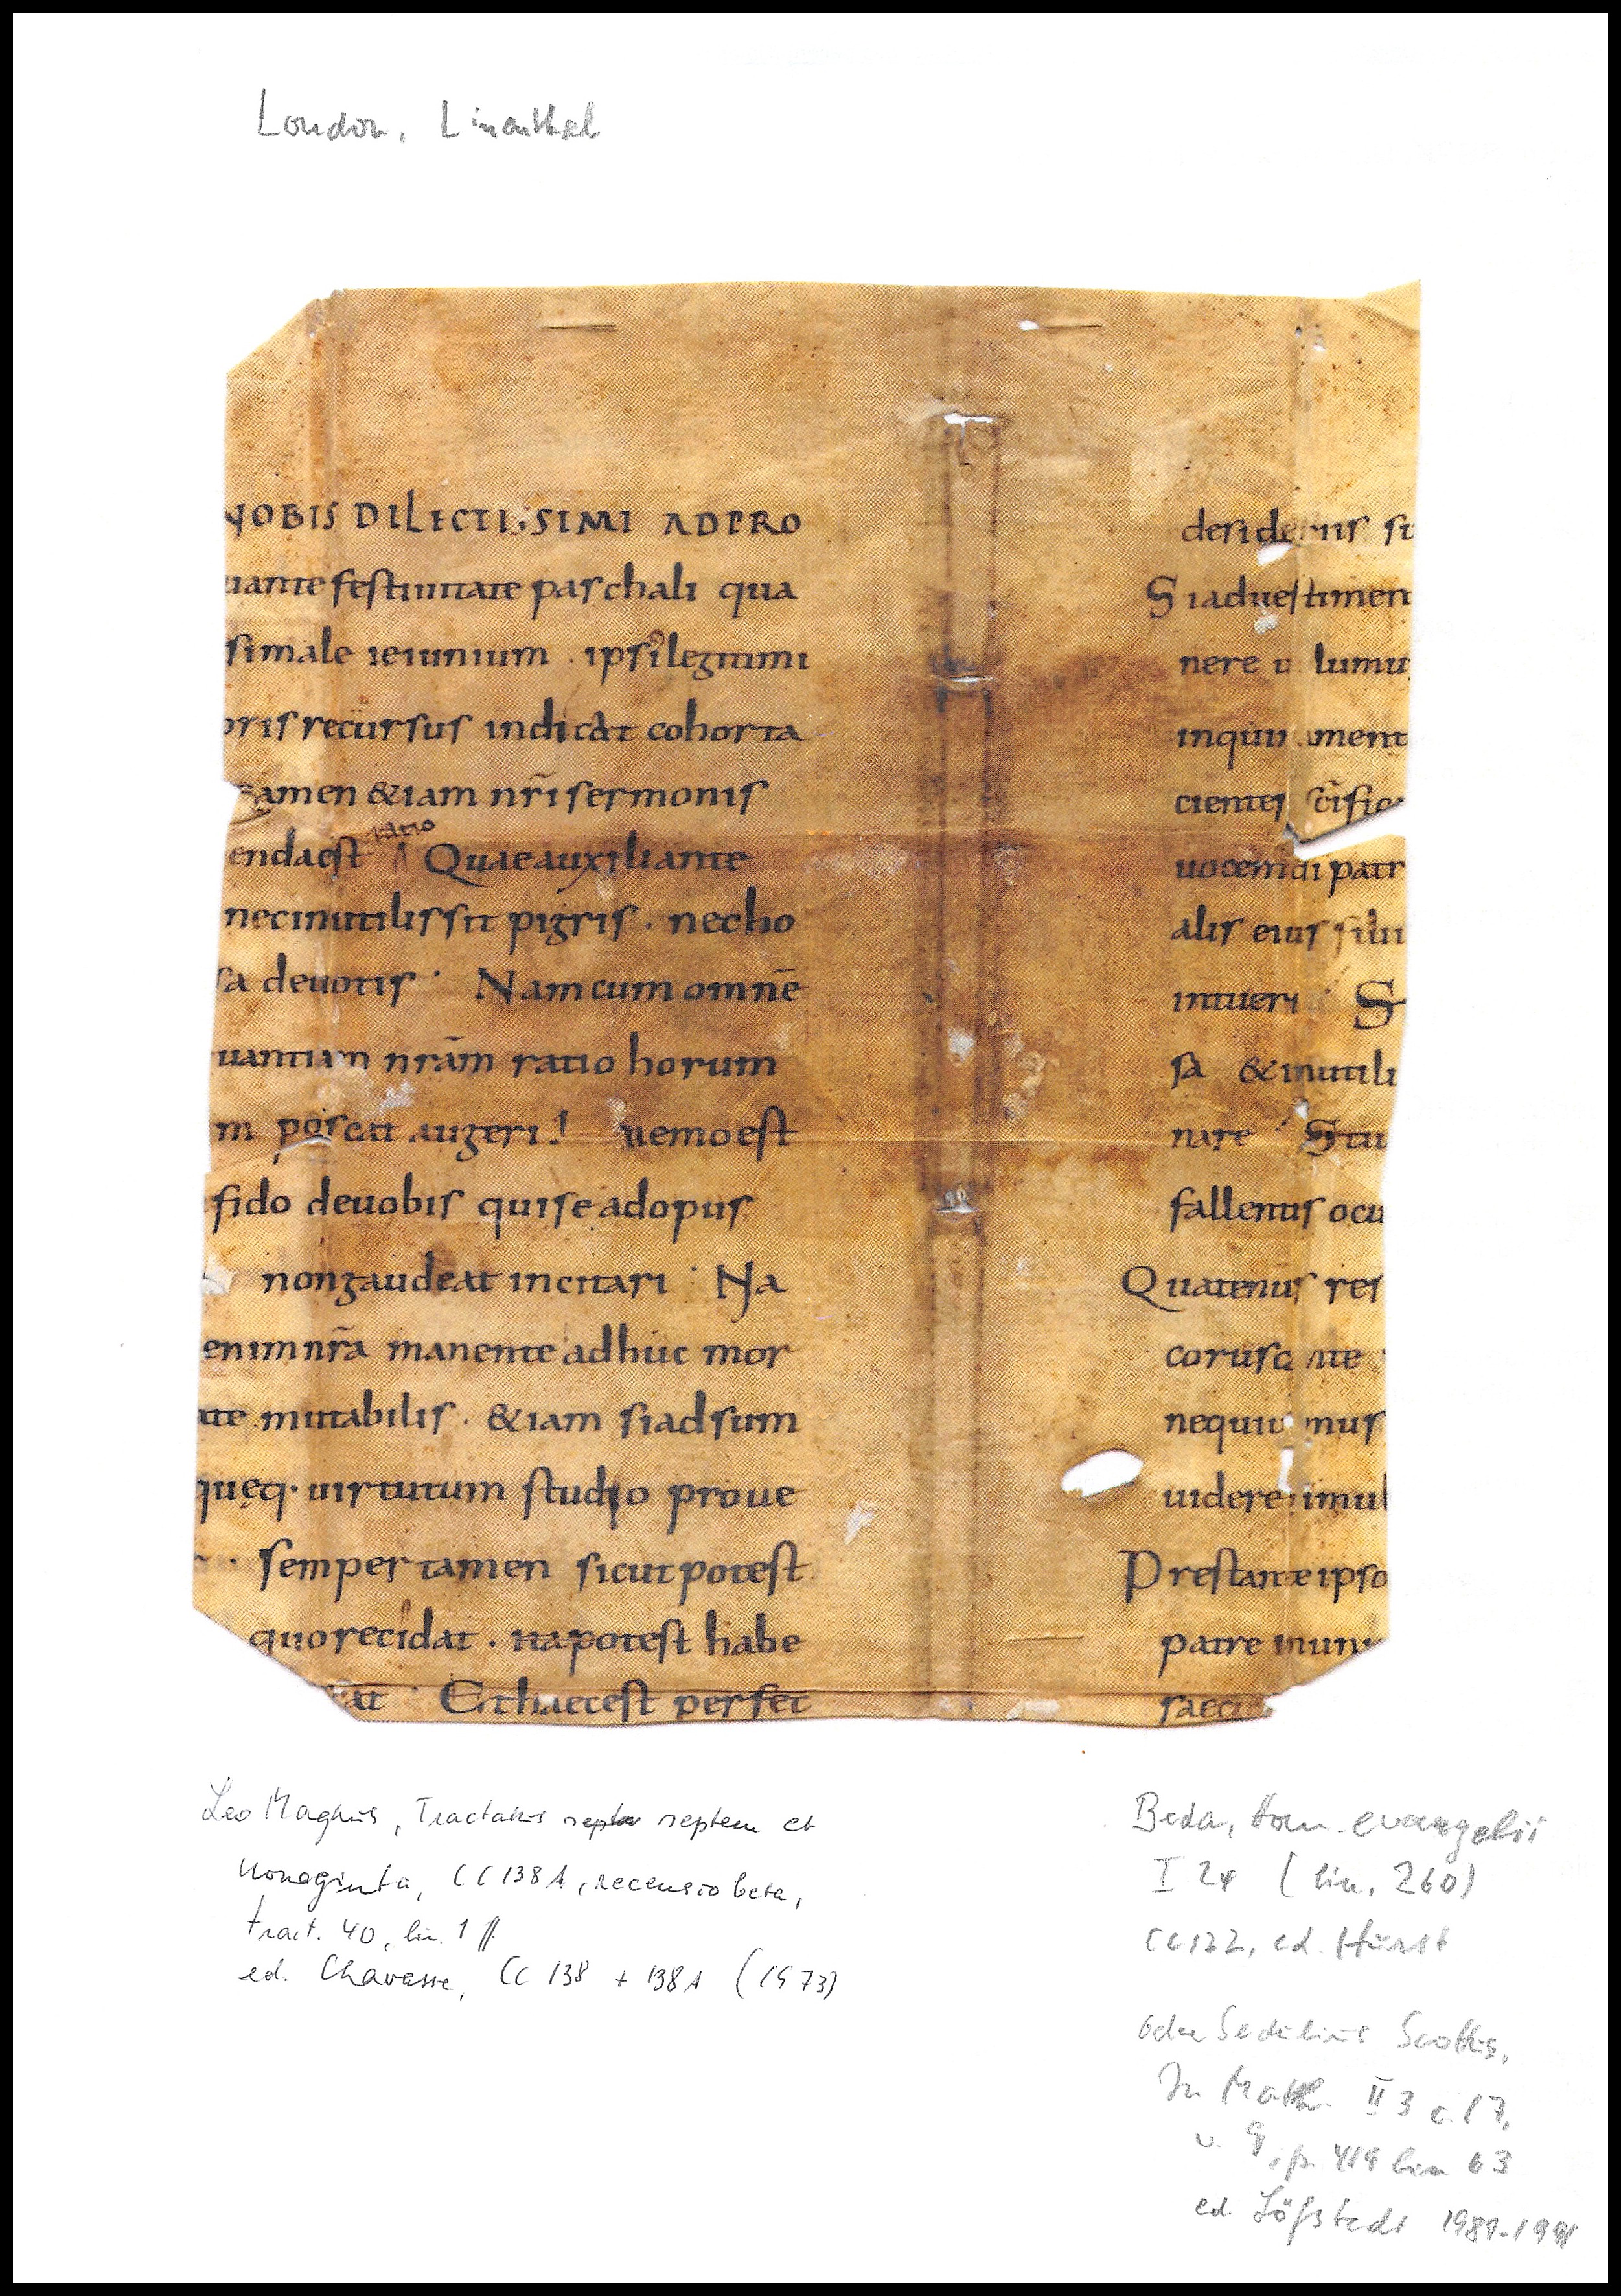 London, Linenthal
VOBIS DILECTISSIMI ADPRO
uante festiuitate paschali qua
simale ieiunium . ipsi legitimi
oris recursus indicat cohorta
tamen &iam nr̄i sermonis
endaest ratio Quaeauxiliante
necinutilis sit pigris . necho
sa deuotis . Namcum omnē
uantiam nr̄am ratio horum
m poscat augeri ! nemoest
fido deuobis quise adopus
nongaudeat incitari . Na
enim nr̄a manente adhuc mor
ate mutabilis . &iam siadsum
quęq. uirtutum studio proue
. semper tamen sicut potest
quo recidat . ita potest habe
at . Et haecest perfec
desideriis si
Si aduestimen
nere uolumu
inquin ament
cientes sc̄ifica
uocem di patr
alis eius filii
intueri . S
sa &inutili
nare . Stu
fallentis ocu
Quatenus res
corusc nte
nequiu mus
uidere simul
Prestante ipso
patre inuni
saecu
Leo Magnus, Tractatus septem et
nonaginta, CC 138 A, recensio beta,
tract. 40, lin. 1 ff.
ed. Chavasse, CC 138 + 138 A (1973)
Beda, Hom. evangelii
I 24 (lin. 260)
CC 122, ed. Hurst
oder Sedulius Scottus,
In Matth. II 3 c. 17,
v. 9, p. 419 lin 63
ed. Löfstedt 1989-1991